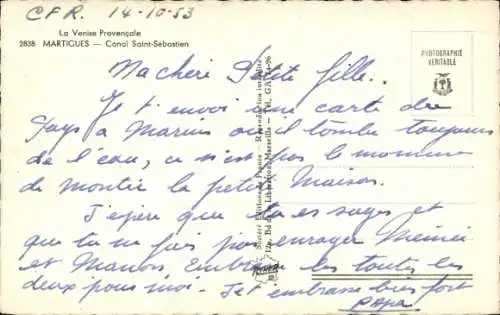 CFR. 14-10-53
La Venise Provençale
2838 MARTIGUES — Canal Saint-Sébastien
PHOTOGRAPHIE
VÉRITABLE
Ma cheri Petite fille.
Je t'envoi une carte du
Pays a Marius ou il tombe toujours
de l'eau, ce n'est pas le moment
de monter la petite Maison.
J'espère que tu es sages et
que tu ne fais pas enrager Mémée
et Manon. Embrasse les toutes les
deux pour moi. Je t'embrasse bien fort
Papa